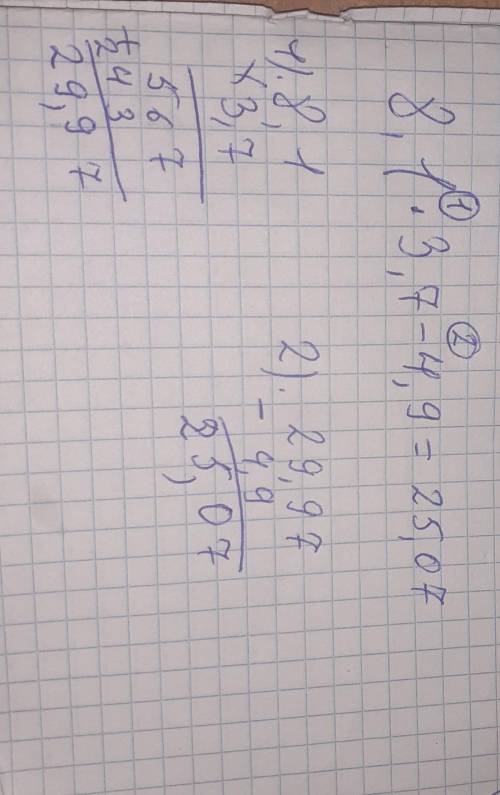 ① ②
8,1 · 3,7 - 4,9 = 25,07
1). 8,1
× 3,7
567
+ 243
29,97
2). 29,97
- 4,9
25,07